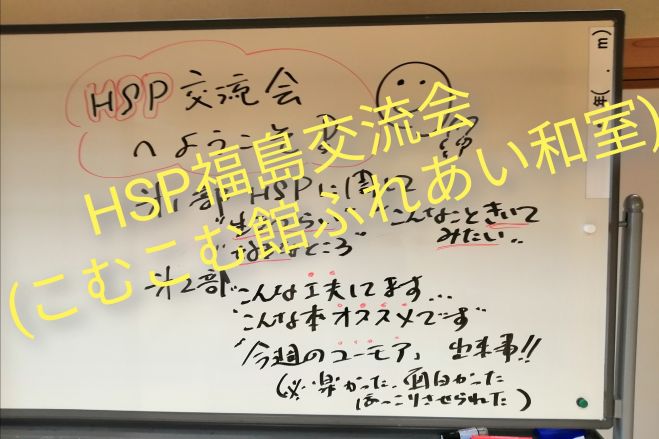 HSP交流会
へようこそ
HSP福島交流会
(こむこむ館ふれあい和室)
年( . m)
第1部 HSPに関して
"生きづらい"
ところ"
"こんなこときいて
みたい..
第2部"こんな工夫してます...
"こんな本オススメです"
「今週のユーモア」 出来事!!
(※楽かった、面白かった
ほっこりさせられた)